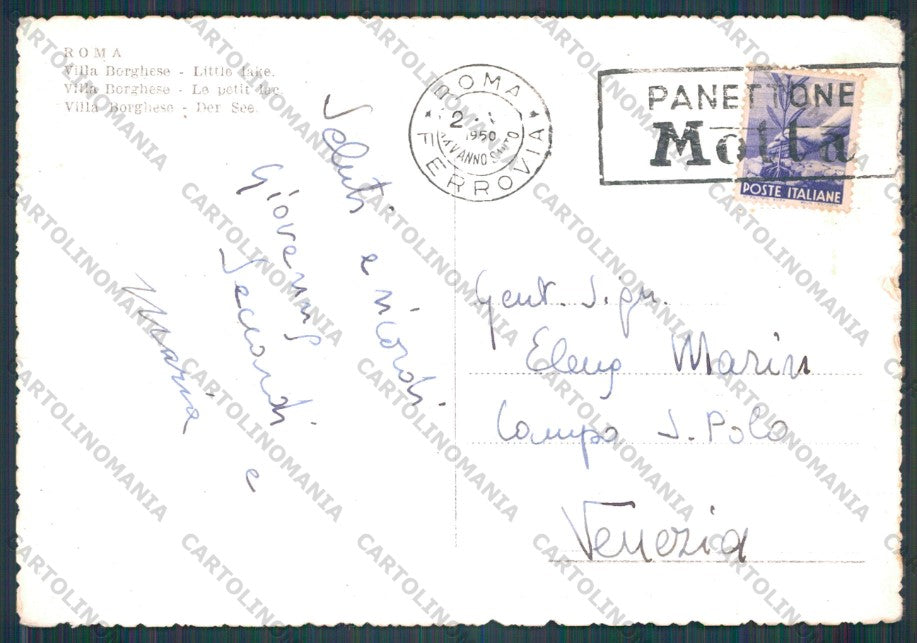 ROMA
Villa Borghese - Little lake.
Villa Borghese - Le petit lac.
Villa Borghese - Der See.
ROMA
2
1950
XXV ANNO SANTO
FERROVIA
PANETTONE
Motta
POSTE ITALIANE
Saluti e ricordi
Giovanni
Secondi e
Maria
Gent. Sign.
Elena Marin
Campo S. Polo
Venezia
CARTOLINOMANIA